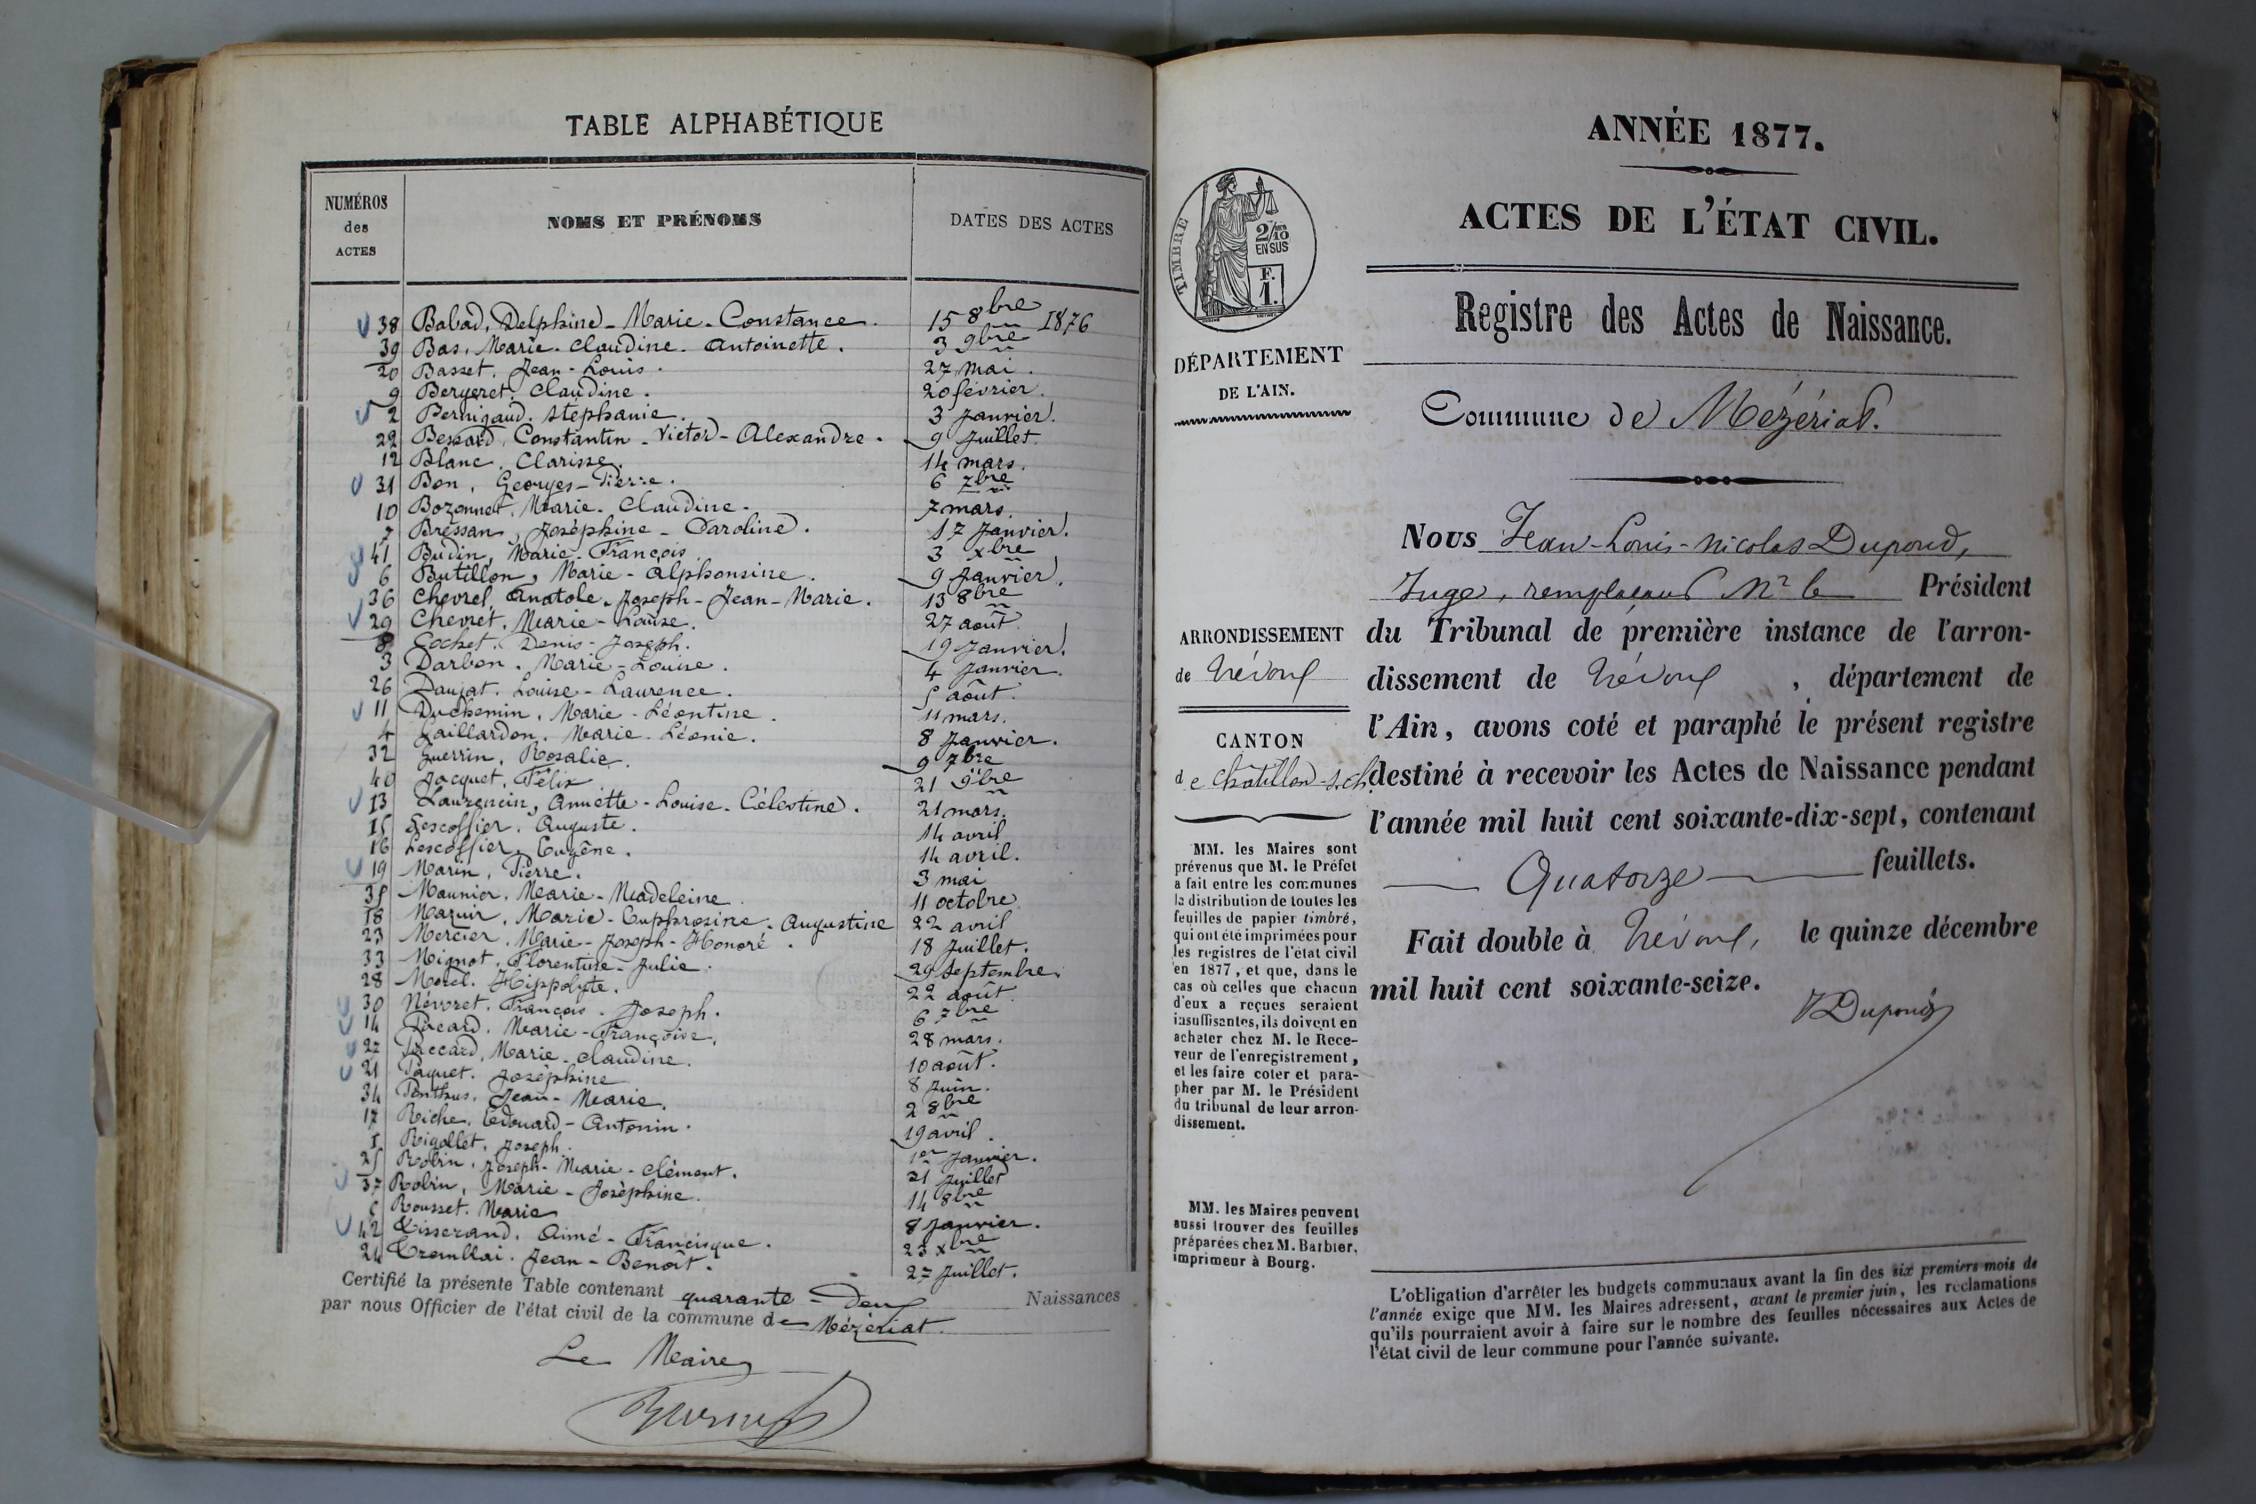 TABLE ALPHABÉTIQUE
NUMÉROS des ACTES NOMS ET PRÉNOMS DATES DES ACTES
38 Babad, Delphine - Marie - Constance. 15 8bre 1876
39 Bas, Marie - Claudine - Antoinette. 3 9bre
20 Basset, Jean - Louis. 27 mai.
9 Bergeret, Claudine. 20 février.
2 Bernigaud, Stéphanie. 3 Janvier.
22 Bessard, Constantin - Victor - Alexandre. 9 Juillet.
12 Blanc, Clarisse. 14 mars.
31 Bon, Georges - Pierre. 6 7bre
10 Bozonnet, Marie - Claudine. 7 mars.
7 Bressan, Joséphine - Caroline. 17 Janvier.
41 Budin, Marie - François. 3 xbre
6 Butillon, Marie - Alphonsine. 9 Janvier.
36 Chevrel, Anatole - Joseph - Jean - Marie. 13 8bre
29 Chevret, Marie - Louise. 27 août.
8 Cochet, Denis - Joseph. 19 Janvier.
3 Darbon, Marie - Louise. 4 Janvier.
26 Daujat, Louise - Laurence. 5 août.
11 Duchemin, Marie - Léontine. 11 mars.
4 Gaillardon, Marie - Léonie. 8 Janvier.
32 Guerrin, Rosalie. 9 7bre
40 Jacquet, Félix. 21 9bre
13 Laurencin, Annette - Louise - Célestine. 21 mars.
15 Lescoffier, Auguste. 14 avril
16 Lescoffier, Eugène. 14 avril.
19 Marin, Pierre. 3 mai
35 Maunier, Marie - Madeleine. 11 octobre
18 Marie - Euphrosine - Augustine 22 avril
23 Mercier, Marie - Joseph - Honoré. 18 Juillet.
33 Mignot, Florentine - Julie. 29 Septembre.
28 Morel, Hippolyte. 22 août.
30 Névoret, François - Joseph. 6 7bre
14 Pacard, Marie - Françoise. 28 mars.
27 Marie - Claudine. 10 août.
21 Paquet, Joséphine 8 Juin.
34 Penthus, Jean - Marie. 2 8bre
17 Riche, Edouard - Antonin. 19 avril.
1 Rigollet, Joseph. 1er Janvier.
25 Robin, Joseph - Marie - Clément. 21 Juillet
37 Robin, Marie - Joséphine. 14 8bre
5 Rousset, Marie 8 Janvier.
42 Tisserand, Aimé - Francisque. 23 xbre
24 Tremblai, Jean - Benoît. 27 Juillet.
Certifié la présente Table contenant quarante - Deux Naissances
par nous Officier de l'état civil de la commune de Mézériat.
Le Maire
ANNÉE 1877.
ACTES DE L'ÉTAT CIVIL.
Registre des Actes de Naissance.
Commune de Mézériat.
TIMBRE
2/10 EN SUS
F. 1.
DÉPARTEMENT
DE L'AIN.
ARRONDISSEMENT
de Trévoux
CANTON
de Châtillon-s.Ch.
MM. les Maires sont
prévenus que M. le Préfet
a fait entre les communes
la distribution de toutes les
feuilles de papier timbré,
qui ont été imprimées pour
les registres de l'état civil
en 1877, et que, dans le
cas où celles que chacun
d'eux a reçues seraient
insuffisantes, ils doivent en
acheter chez M. le Rece-
veur de l'enregistrement,
et les faire coter et para-
pher par M. le Président
du tribunal de leur arron-
dissement.
MM. les Maires peuvent
aussi trouver des feuilles
préparées chez M. Barbier,
imprimeur à Bourg.
Nous Jean-Louis-Nicolas Dupond,
Juge, remplaçant Mr le Président
du Tribunal de première instance de l'arron-
dissement de Trévoux, département de
l'Ain, avons coté et paraphé le présent registre
destiné à recevoir les Actes de Naissance pendant
l'année mil huit cent soixante-dix-sept, contenant
Quatorze feuillets.
Fait double à Trévoux, le quinze décembre
mil huit cent soixante-seize.
Dupond
L'obligation d'arrêter les budgets communaux avant la fin des six premiers mois de
l'année exige que MM. les Maires adressent, avant le premier juin, les réclamations
qu'ils pourraient avoir à faire sur le nombre des feuilles nécessaires aux Actes de
l'état civil de leur commune pour l'année suivante.